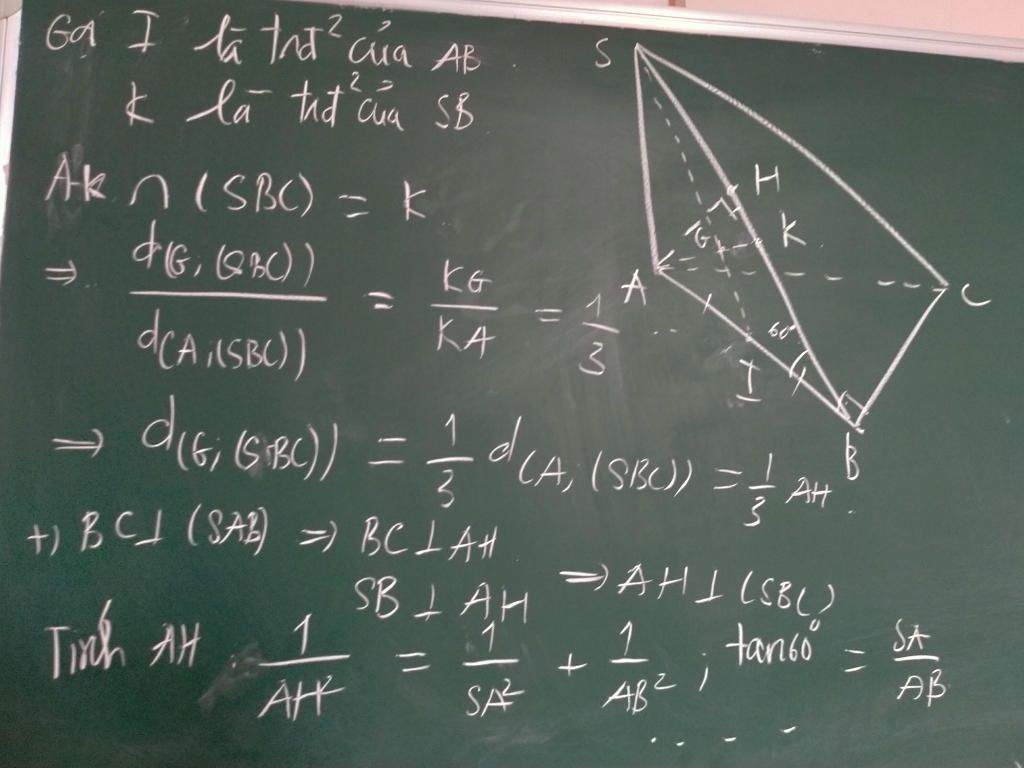 Gọi I là trđ² của AB.
K là trđ² của SB
AK ∩ (SBC) = K
⇒ d(G, (SBC)) / d(A, (SBC)) = KG / KA = 1/3 ..
⇒ d(G, (SBC)) = 1/3 d(A, (SBC)) = 1/3 AH.
+) BC ⊥ (SAB) ⇒ BC ⊥ AH
SB ⊥ AH ⇒ AH ⊥ (SBC)
Tính AH. 1/AH² = 1/SA² + 1/AB² ; tan60° = SA/AB
. . - -
S
H
G
K
A
C
60°
I
B